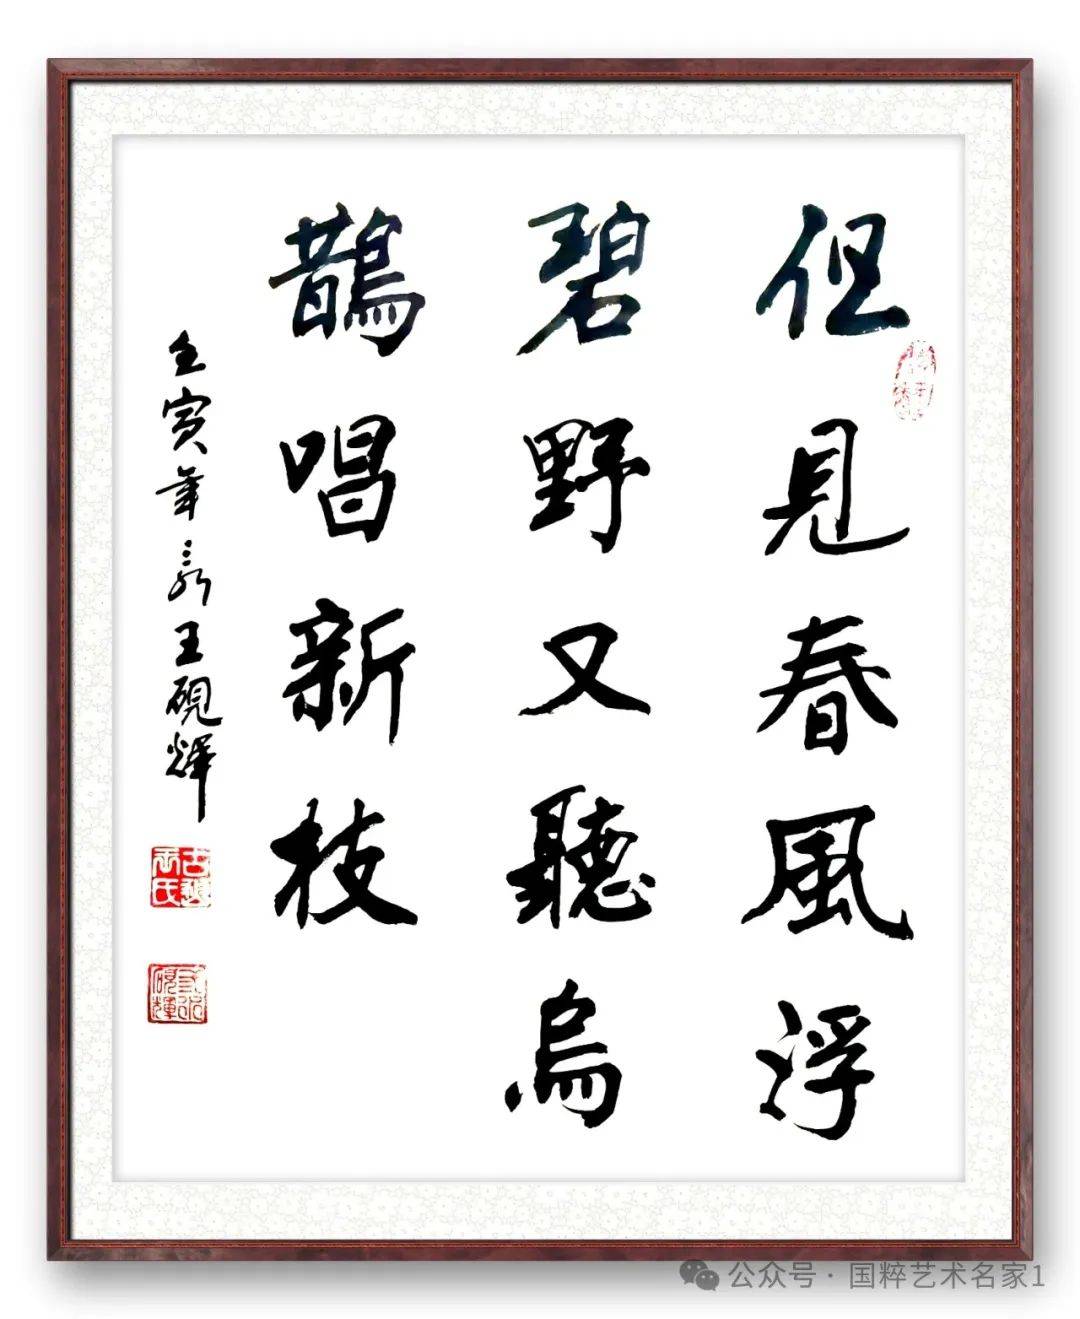 但見春風浮
碧野又聽烏
鵲唱新枝
壬寅年王硯輝
公众号 · 国粹艺术名家1